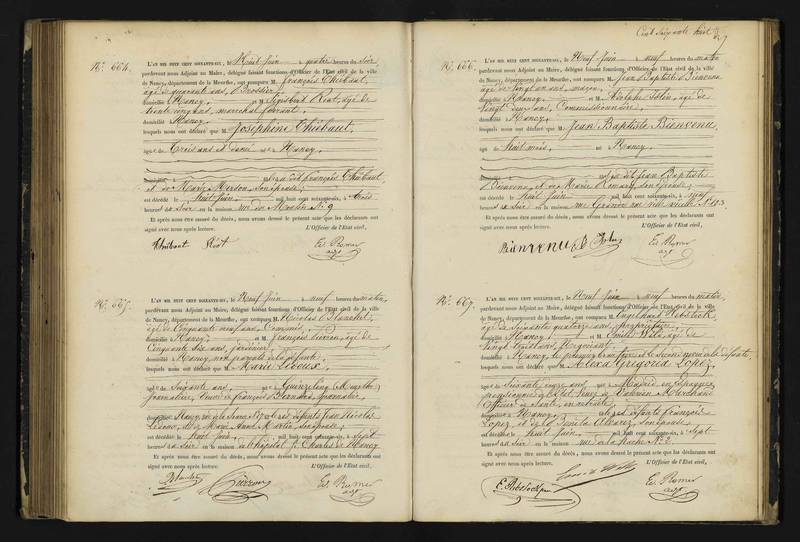 N° 664.
L'AN MIL HUIT CENT SOIXANTE-SIX, le Huit Juin à quatre heures du soir,
pardevant nous Adjoint au Maire, délégué faisant fonctions d'Officier de l'Etat civil de la ville
de Nancy, département de la Meurthe, ont comparu M. François Thiébaut,
âgé de quarante ans, Brossier,
domicilié à Nancy, et M. Riot, âgé de
trente cinq ans, marechal ferrant,
domicilié à Nancy,
lesquels nous ont déclaré que Joséphine Thiébaut,
âgée de Trois ans et demi née à Nancy,
dit François Thiébaut,
et de Marie son épouse;
est décédée le huit Juin mil huit cent soixante-six, à trois
heures du soir en la maison rue du N° 9
Et après nous être assuré du décès, nous avons dressé le présent acte que les déclarants ont
signé avec nous après lecture. L'Officier de l'Etat civil,
Thiébaut Riot Ed. Resmer
N° 665.
L'AN MIL HUIT CENT SOIXANTE-SIX, le Neuf Juin à neuf heures du matin,
pardevant nous Adjoint au Maire, délégué faisant fonctions d'Officier de l'Etat civil de la ville
de Nancy, département de la Meurthe, ont comparu M. Nicolas Blanchet,
âgé de Cinquante neuf ans, Commis,
domicilié à Nancy, et M. François âgé de
Cinquante six ans, jardinier,
domicilié à Nancy, non parents de la défunte,
lesquels nous ont déclaré que Marie Leroux,
âgée de Soixante ans, née à Meurthe
journalière, Veuve de François Bernard, journalier,
domiciliée à Nancy, fille des défunts Nicolas
et de Marie Anne Martin, son épouse;
est décédée le huit Juin mil huit cent soixante-six, à sept
heures du soir en l'hôpital St Charles de Nancy
Et après nous être assuré du décès, nous avons dressé le présent acte que les déclarants ont
signé avec nous après lecture. L'Officier de l'Etat civil,
Ed. Resmer
Cent Soixante huit
N° 666.
L'AN MIL HUIT CENT SOIXANTE-SIX, le Neuf Juin à neuf heures du matin
pardevant nous Adjoint au Maire, délégué faisant fonctions d'Officier de l'Etat civil de la ville
de Nancy, département de la Meurthe, ont comparu M. Jean Baptiste Bienvenu,
âgé de Vingt six ans, maçon,
domicilié à Nancy, et M. âgé de
Vingt deux ans, Commissionnaire,
domicilié à Nancy,
lesquels nous ont déclaré que Jean Baptiste Bienvenu,
âgé de huit mois, né à Nancy,
fils du dit Jean Baptiste
Bienvenu, et de Marie son épouse;
est décédé le huit Juin mil huit cent soixante-six, à neuf
heures du soir en la maison rue Grande en ville vieille N° 123
Et après nous être assuré du décès, nous avons dressé le présent acte que les déclarants ont
signé avec nous après lecture. L'Officier de l'Etat civil,
Bienvenu Ed. Resmer
N° 667.
L'AN MIL HUIT CENT SOIXANTE-SIX, le Neuf Juin à neuf heures du matin,
pardevant nous Adjoint au Maire, délégué faisant fonctions d'Officier de l'Etat civil de la ville
de Nancy, département de la Meurthe, ont comparu M. Engelhard Rebstock
âgé de Soixante quatorze ans, propriétaire,
domicilié à Nancy, et M. Emile âgé de
Vingt huit ans, Négociant,
domicilié à Nancy, le premier et le second de la défunte,
lesquels nous ont déclaré que Alexa Grigoria Lopez,
âgée de Soixante onze ans, née à Madrid en Espagne,
pensionnaire de l'Etat, Veuve de
Officier de Santé en retraite,
domiciliée à Nancy, fille des défunts François
Lopez, et de Alvarez, son épouse;
est décédée le huit Juin mil huit cent soixante-six, à sept
heures du soir en la maison rue de la N° 2.
Et après nous être assuré du décès, nous avons dressé le présent acte que les déclarants ont
signé avec nous après lecture. L'Officier de l'Etat civil,
E. Rebstock Ed. Resmer